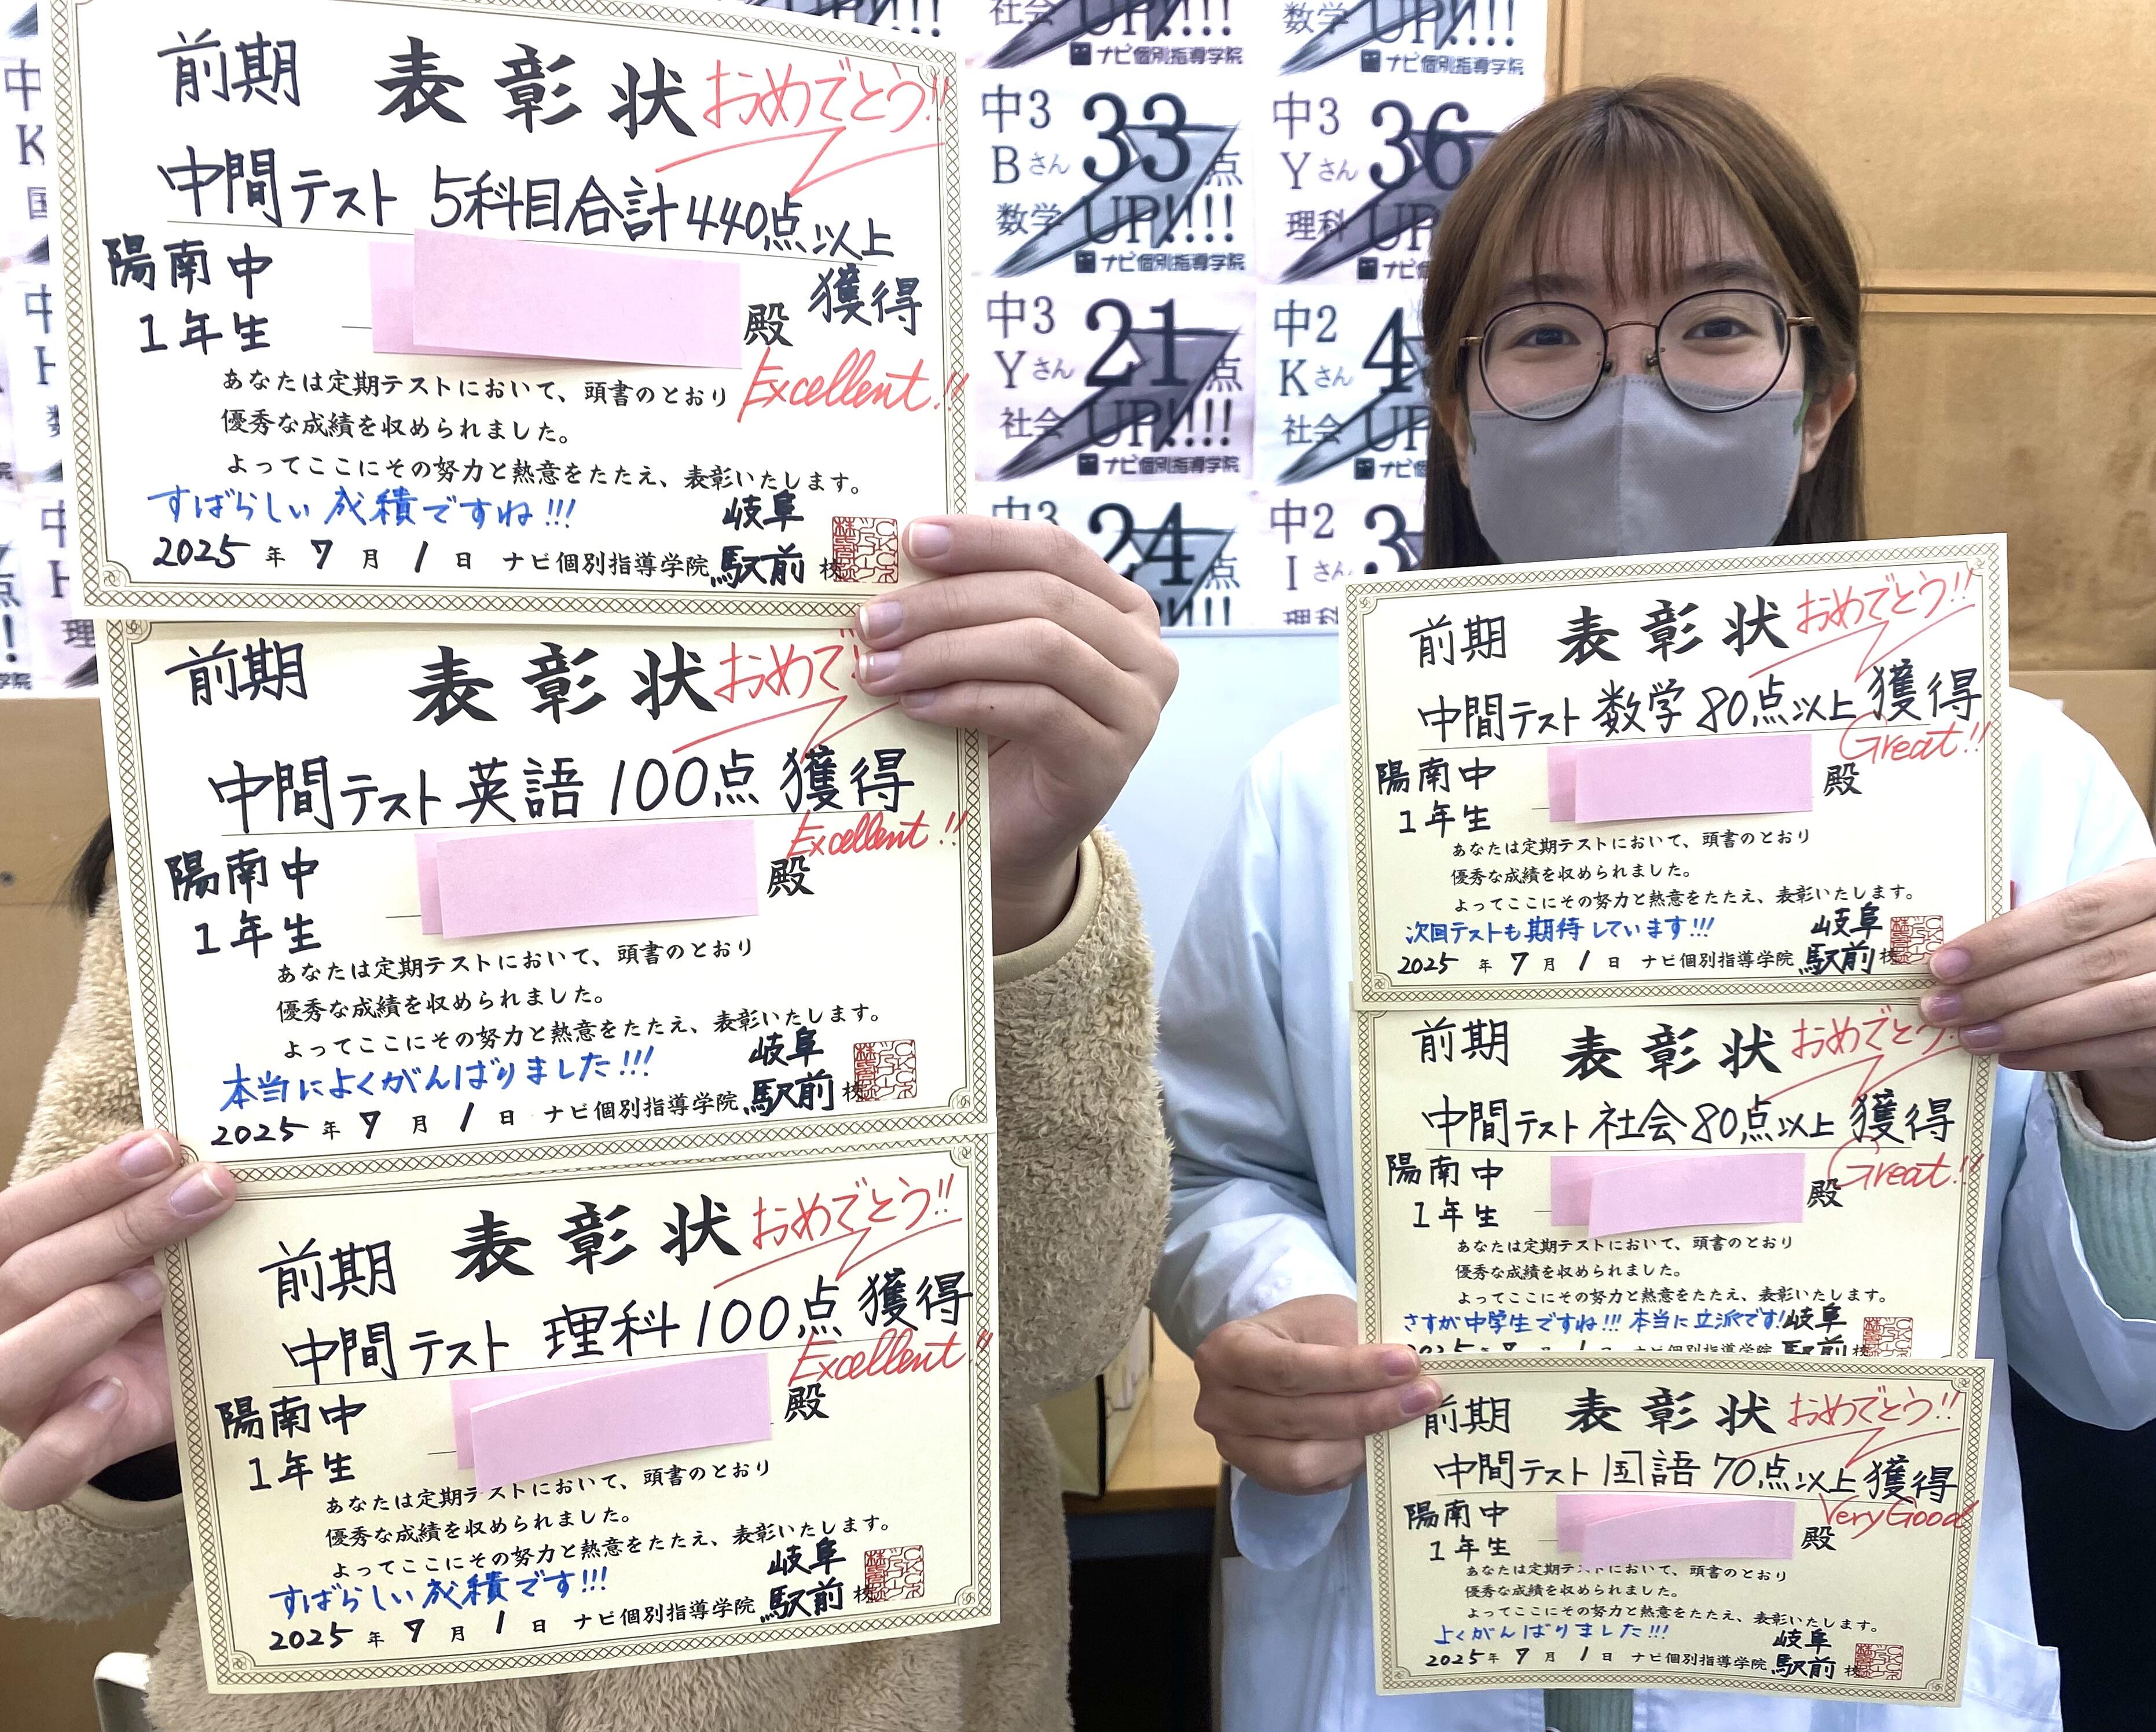 前期 表彰状 おめでとう!!
中間テスト 5科目合計440点以上
獲得
陽南中
1年生
殿
Excellent!!
あなたは定期テストにおいて、頭書のとおり
優秀な成績を収められました。
よってここにその努力と熱意をたたえ、表彰いたします。
すばらしい成積ですね!!!
岐阜
2025年7月1日 ナビ個別指導学院 駅前 校
前期 表彰状 おめで
中間テスト 英語 100点 獲得
Excellent!!
陽南中
1年生
殿
あなたは定期テストにおいて、頭書のとおり
優秀な成績を収められました。
よってここにその努力と熱意をたたえ、表彰いたします。
本当によくがんばりました!!!
岐阜
2025年7月1日 ナビ個別指導学院 駅前 校
前期 表彰状 おめでとう!!
中間テスト 理科 100点 獲得
Excellent!!
陽南中
1年生
殿
あなたは定期テストにおいて、頭書のとおり
優秀な成績を収められました。
よってここにその努力と熱意をたたえ、表彰いたします。
すばらしい成積です!!!
岐阜
2025年7月1日 ナビ個別指導学院 駅前 校
社会 UP!!!!
ナビ個別指導学院
数学 UP!!!!
ナビ個別指導学院
中3
Bさん
33点
数学 UP!!!!
ナビ個別指導学院
中3
Yさん
36
理科 UP
ナビ個
中3
Yさん
21点
社会 UP!!!!
ナビ個別指導学院
中2
Kさん
4
社会 UP
ナビ個
中3
24点
中2
Iさん
3
理科
前期 表彰状 おめでとう!!
中間テスト 数学 80点以上 獲得
Great!!
陽南中
1年生
殿
あなたは定期テストにおいて、頭書のとおり
優秀な成績を収められました。
よってここにその努力と熱意をたたえ、表彰いたします。
次回テストも期待しています!!!
岐阜
2025年7月1日 ナビ個別指導学院 駅前 校
前期 表彰状 おめでとう!
中間テスト 社会 80点以上 獲得
Great!!
陽南中
1年生
殿
あなたは定期テストにおいて、頭書のとおり
優秀な成績を収められました。
よってここにその努力と熱意をたたえ、表彰いたします。
さすが中学生ですね!!! 本当に立派です!
岐阜
2025年7月1日 ナビ個別指導学院 駅前 校
前期 表彰状 おめでとう!!
中間テスト 国語 70点以上 獲得
Very Good
陽南中
1年生
殿
あなたは定期テストにおいて、頭書のとおり
優秀な成績を収められました。
よってここにその努力と熱意をたたえ、表彰いたします。
よくがんばりました!!!
岐阜
2025年7月1日 ナビ個別指導学院 駅前 校